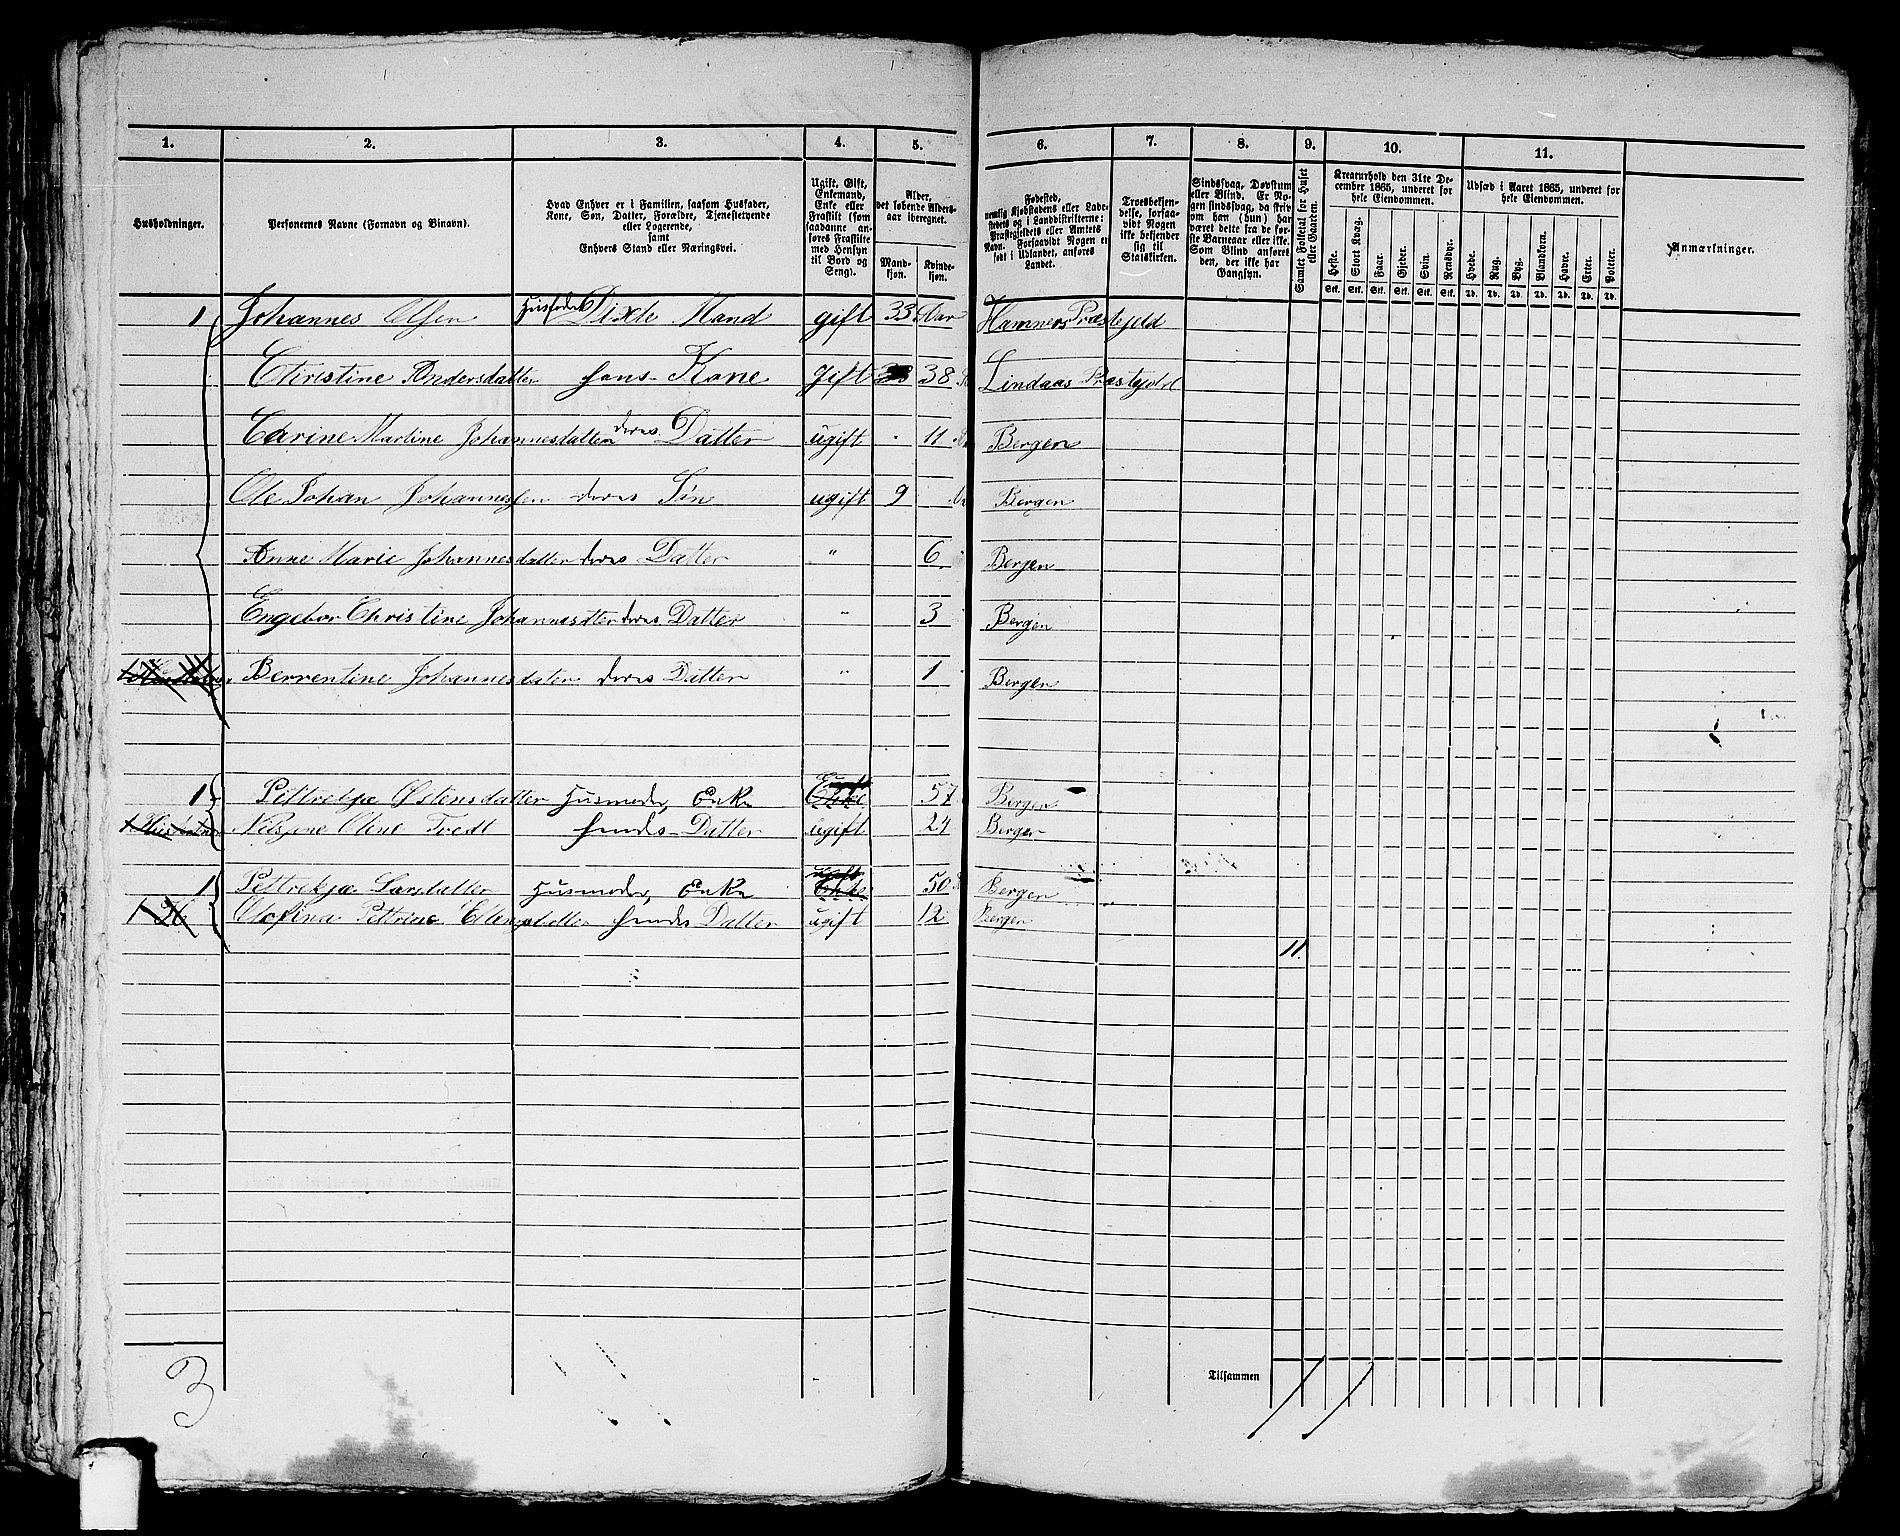 1. 2. 3. 4. 5. 6. 7. 8. 9. 10. 11.
Husholdninger.
Personernes Navne (Fornavn og Binavn).
Hvad Enhver er i Familien, saasom Husfader,
Kone, Søn, Datter, Forældre, Tjenestetyende
eller Logerende,
samt
Enhvers Stand eller Næringsvei.
Ugift, Gift,
Enkemand,
Enke eller
Fraskilt (som
saadanne an-
føres Fraskilte
med Hensyn
til Bord og
Seng).
Alder,
det løbende Alders-
aar iberegnet.
Mand-
kjøn.
Kvinde-
kjøn.
Fødested,
nemlig Kjøbstadens eller Lade-
stedets og i Landdistrikterne:
Præstegjeldets eller Amtets
Navn. Forsaavidt Nogen er
født i Udlandet, anføres
Landet.
Troesbekjen-
delse, forsaa-
vidt Nogen
ikke bekjender
sig til
Statskirken.
Sindssvag, Døvstum
eller Blind. Er No-
gen sindssvag, da skriv
om han (hun) har
været dette fra de før-
ste Barneaar eller ikke.
Som Blind anføres
den, der ikke har
Gangsyn.
Samlet Folketal for Huset
eller Gaarden.
Kreaturhold den 31te De-
cember 1865, underet for
hele Eiendommen.
Heste. Stort Kvæg. Faar. Gjeder. Svin. Rensdyr.
Stk. Stk. Stk. Stk. Stk. Stk.
Udsæd i Aaret 1865, underet for
hele Eiendommen.
Hvede. Rug. Byg. Blandkorn. Havre. Erter. Poteter.
Td. Td. Td. Td. Td. Td. Td.
Anmærkninger.
1 Johannes Olsen Husfader Mand gift 33 Aar Hammers Præstejeld
Christine Andersdatter hans Kone Gift 38 Lindaas Præstejeld
Carine Martine Johannesdatter deres Datter ugift 11 Bergen
Ole Johan Johannessen deres Søn ugift 9 Bergen
Anne Marie Johannesdatter deres Datter " 6 Bergen
Engebor Christine Johannesdter deres Datter " 3 Bergen
Berrentine Johannesdater deres Datter " 1 Bergen
1 Pettrekje Østensdatter Husmoder, Enke Enke 57 Bergen
Nilsjene Oline Tvedt hendes Datter ugift 24 Bergen
1 Pettrekje Larsdatter Husmoder, Enke 50 Bergen
Pettrine hendes Datter ugift 12 Bergen
11
Tilsammen 11
3